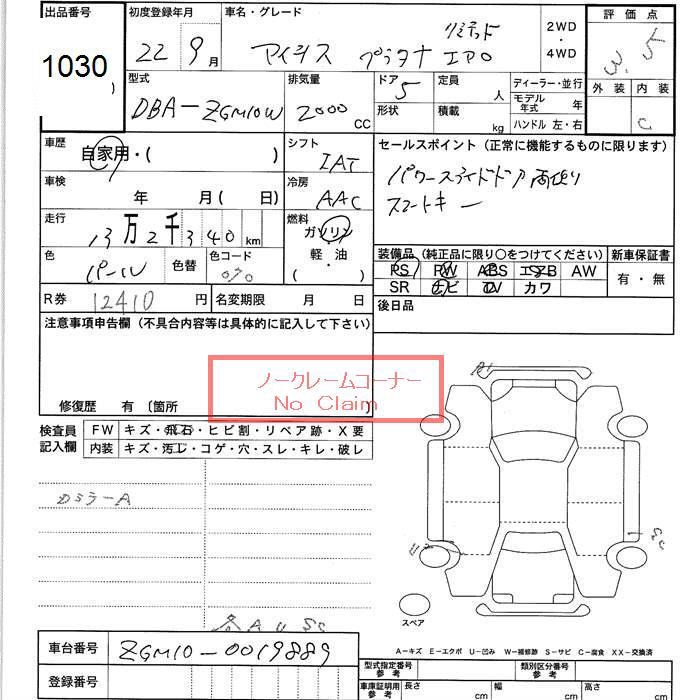 出品番号
1030
)
初度登録年月
22 9月
車名・グレード
アイシス プラタナ リミテッド
2WD
・
4WD
評価点
3.5
外装 内装
C
型式
DBA-ZGM10W
排気量
2000 CC
ドア
5
形状
定員
人
積載
kg
ディーラー・並行
モデル年式 年
ハンドル 左・右
車歴
自家用・( )
シフト
IAT
セールスポイント (正常に機能するものに限ります)
パワースライドドア両側
スマートキー
車検
年 月( 日)
冷房
AAC
走行
13万2千340km
燃料
ガソリン
軽・油
( ・ )
色
パール
色替
色コード
070
装備品 (純正品に限り○をつけてください)
PS PW ABS エアB AW
SR ナビ TV カワ
新車保証書
有・無
R券 12410 円
名変期限 月 日
後日品
注意事項申告欄 (不具合内容等は具体的に記入して下さい)
ノークレームコーナー
No Claim
修復歴 有 〔箇所 〕
検査員記入欄
FW キズ・飛石・ヒビ割・リペア跡・X要
内装 キズ・汚レ・コゲ・穴・スレ・キレ・破レ
Dミラー A
A U SC
スペア
A-キズ E-エクボ U-凹み W-補修跡 S-サビ C-腐食 XX-交換済
車台番号 ZGM10-0019889
登録番号
型式指定番号 参考
類別区分番号 参考
車庫証明用 参考
長さ cm
幅 cm
高さ cm